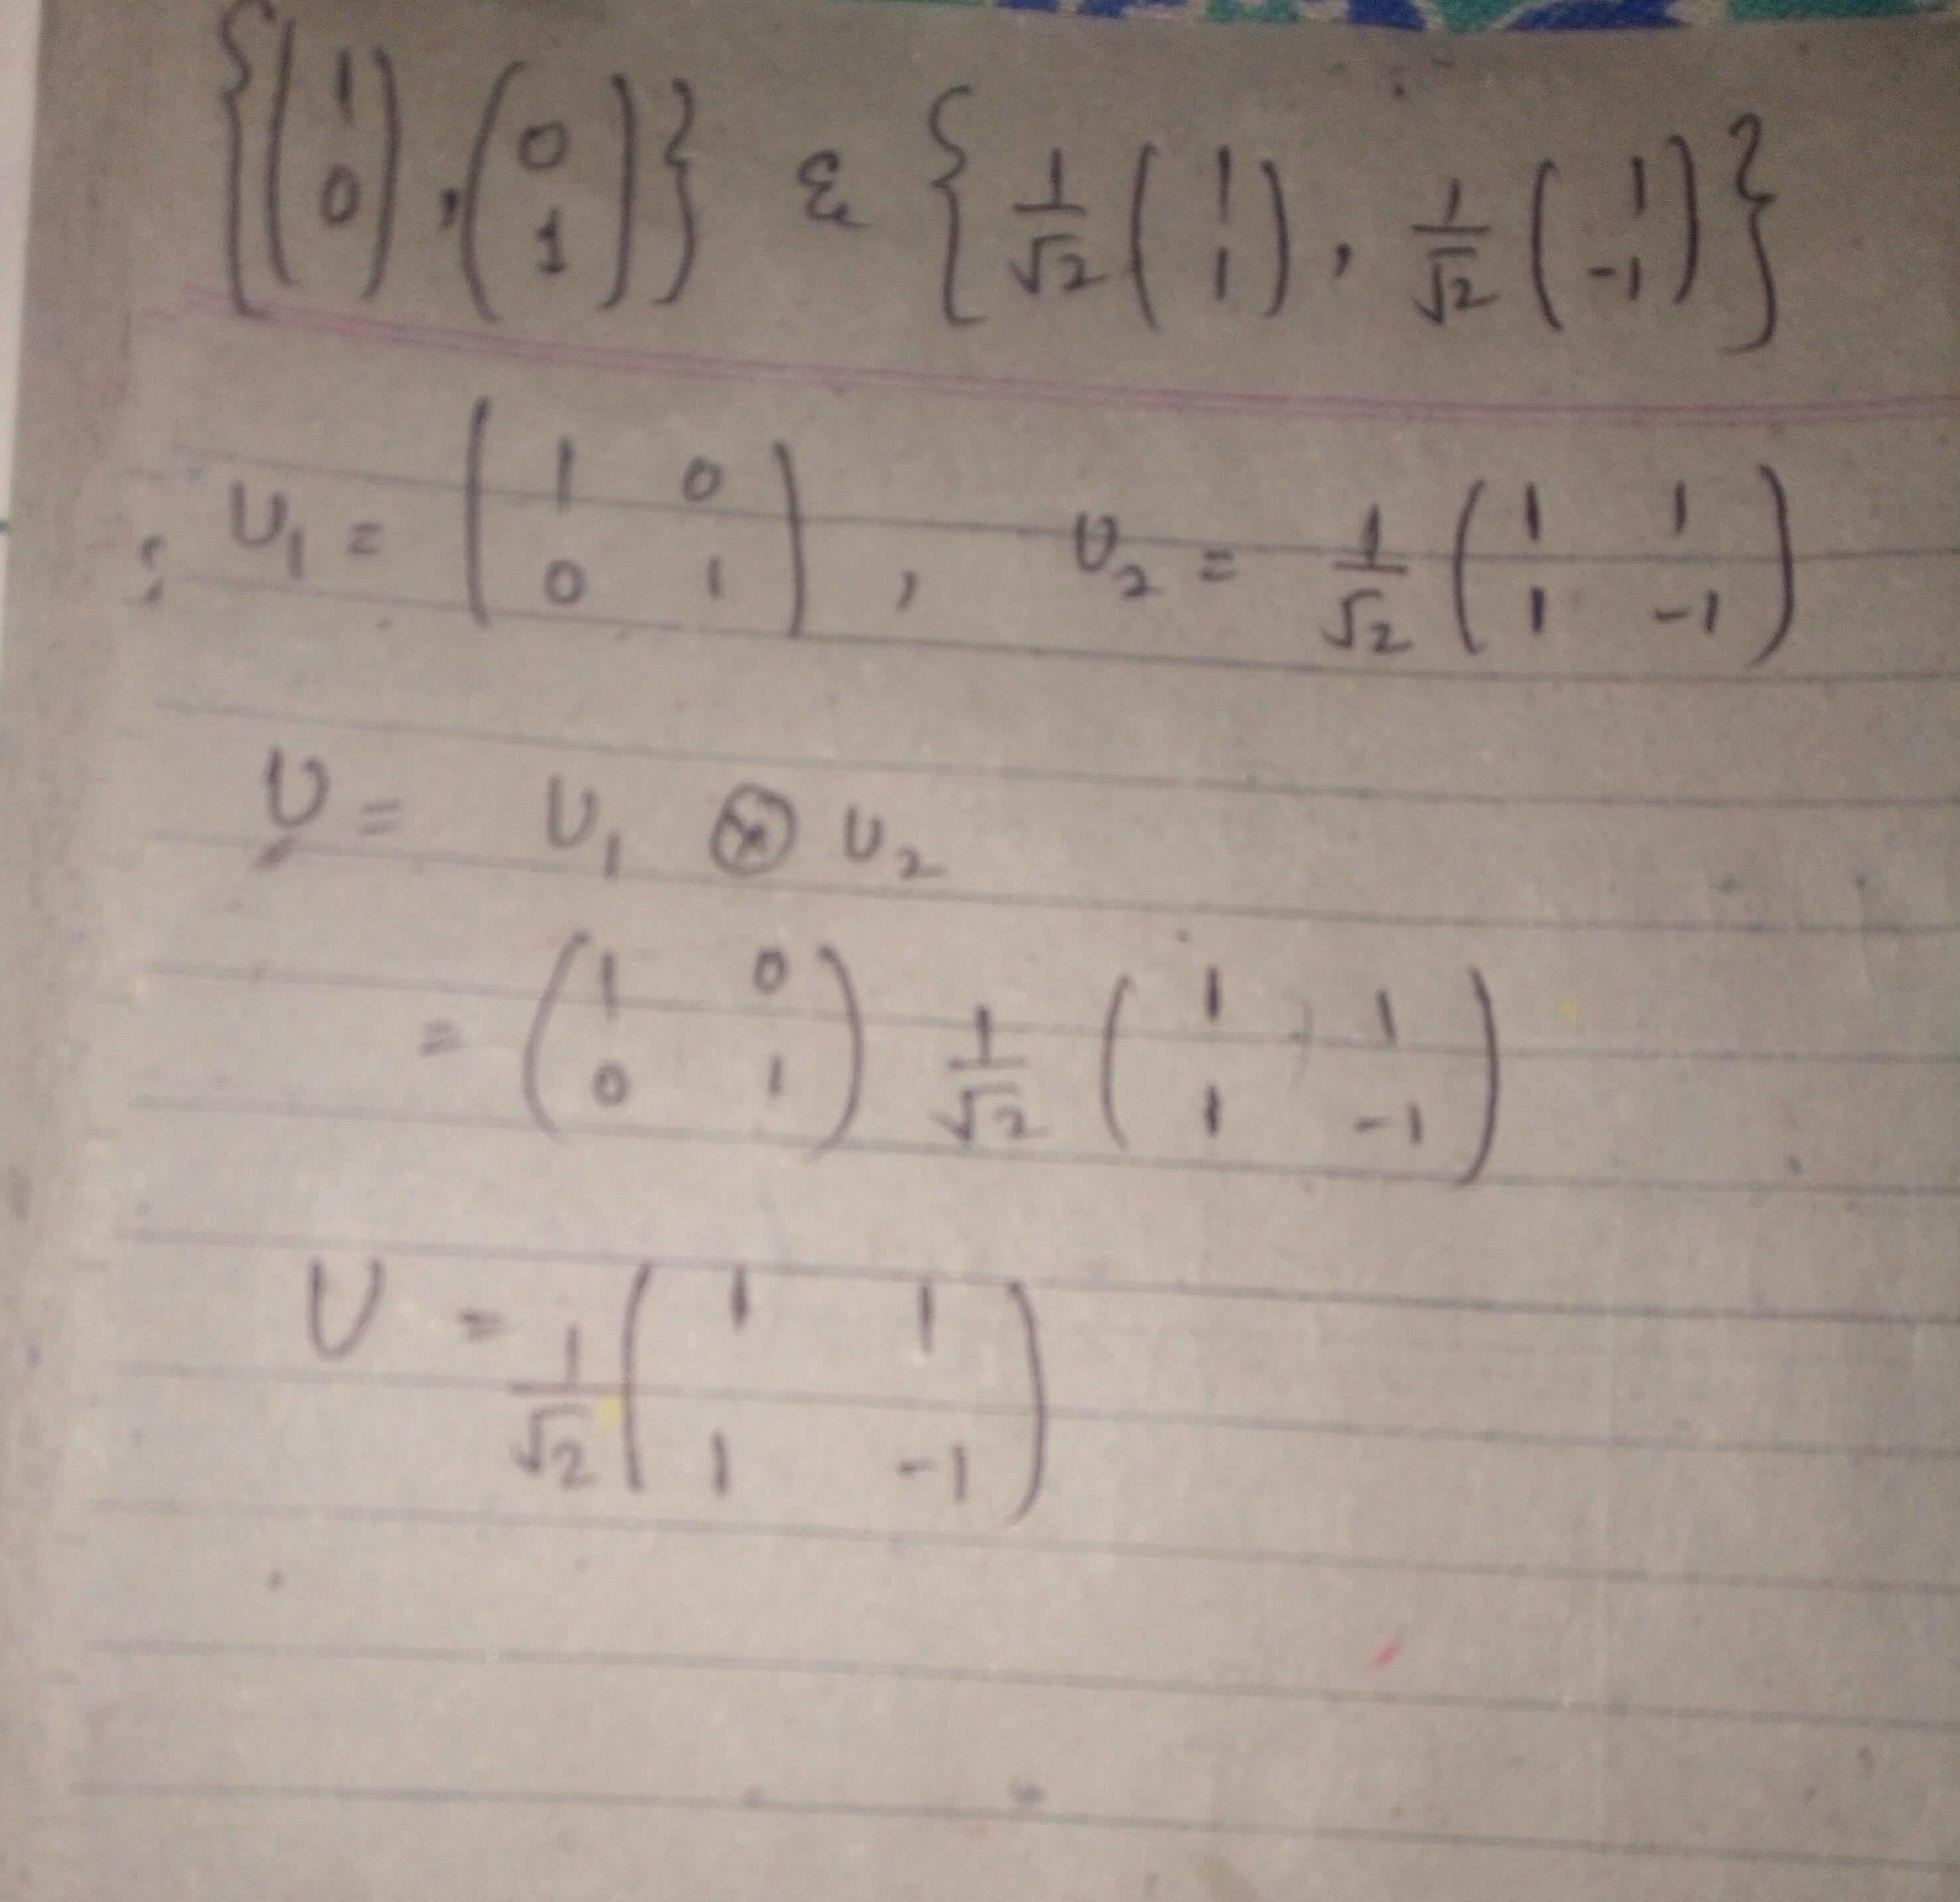 {(1 0), (0 1)} & {1/√2 (1 1), 1/√2 (1 -1)}
U₁ = (1 0 0 1), U₂ = 1/√2 (1 1 1 -1)
U = U₁ ⊗ U₂
= (1 0 0 1) 1/√2 (1 1 1 -1)
U = 1/√2 (1 1 1 -1)